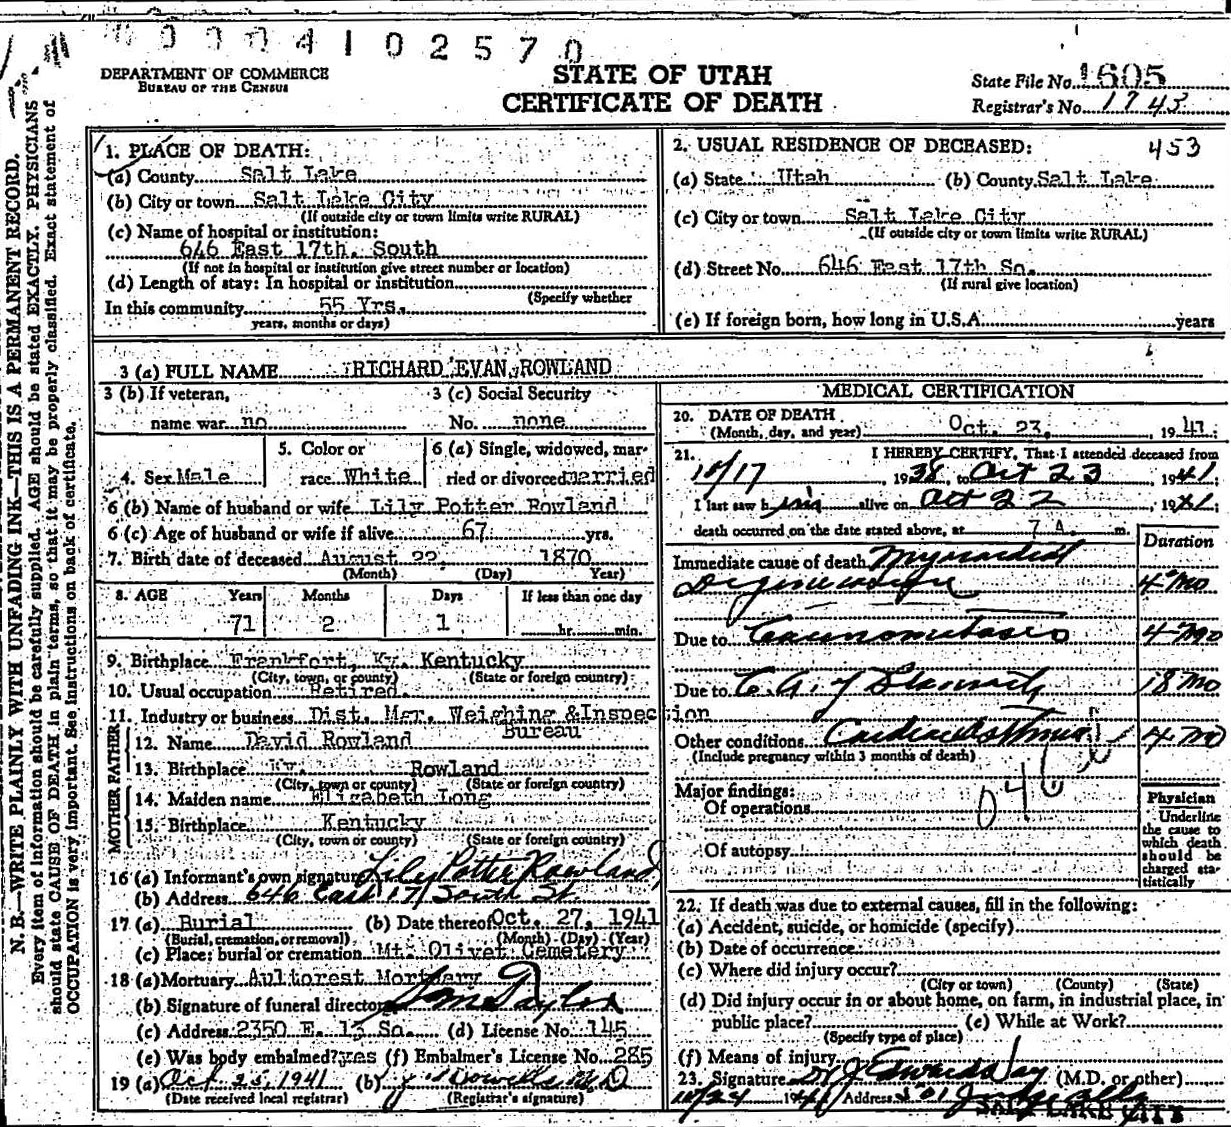 0004102570
DEPARTMENT OF COMMERCE
BUREAU OF THE CENSUS
STATE OF UTAH
CERTIFICATE OF DEATH
State File No. 1605
Registrar's No. 1743
N. B.—WRITE PLAINLY WITH UNFADING INK—THIS IS A PERMANENT RECORD.
Every item of information should be carefully supplied. AGE should be stated EXACTLY. PHYSICIANS
should state CAUSE OF DEATH in plain terms, so that it may be properly classified. Exact statement of
OCCUPATION is very important. See instructions on back of certificate.
1. PLACE OF DEATH:
(a) County Salt Lake
(b) City or town Salt Lake City
(If outside city or town limits write RURAL)
(c) Name of hospital or institution:
646 East 17th. South
(If not in hospital or institution give street number or location)
(d) Length of stay: In hospital or institution
(Specify whether
In this community 55 Yrs.
years, months or days)
2. USUAL RESIDENCE OF DECEASED: 453
(a) State Utah (b) County Salt Lake
(c) City or town Salt Lake City
(If outside city or town limits write RURAL)
(d) Street No. 646 East 17th So.
(If rural give location)
(e) If foreign born, how long in U.S.A. years
3 (a) FULL NAME RICHARD EVAN ROWLAND
3 (b) If veteran, 3 (c) Social Security
name war no No. none
4. Sex Male 5. Color or race White 6 (a) Single, widowed, married or divorced married
6 (b) Name of husband or wife Lily Potter Rowland
6 (c) Age of husband or wife if alive 67 yrs.
7. Birth date of deceased August 22, 1870
(Month) (Day) Year)
8. AGE Years Months Days If less than one day
71 2 1 hr. min.
9. Birthplace Frankfort, Ky. Kentucky
(City, town, or county) (State or foreign country)
10. Usual occupation Retired.
11. Industry or business Dist. Mgr. Weighing &Inspection
Bureau
FATHER
12. Name David Rowland
13. Birthplace Ky. Rowland
(City, town or county) (State or foreign country)
MOTHER
14. Maiden name Elizabeth Long
15. Birthplace Kentucky
(City, town or county) (State or foreign country)
16 (a) Informant's own signature Lily Potter Rowland
(b) Address 646 East 17 South St.
17 (a) Burial (b) Date thereof Oct. 27, 1941
(Burial, cremation, or removal) (Month) (Day) (Year)
(c) Place: burial or cremation Mt. Olivet Cemetery
18 (a) Mortuary Aultorest Mortuary
(b) Signature of funeral director
(c) Address 2350 E. 13 So. (d) License No. 145
(e) Was body embalmed? yes (f) Embalmer's License No. 285
19 (a) Oct 25, 1941 (b)
(Date received local registrar) (Registrar's signature)
MEDICAL CERTIFICATION
20. DATE OF DEATH
(Month, day, and year) Oct. 23, 1941;
21. I HEREBY CERTIFY, That I attended deceased from
10/17, 1938, to Oct 23 1941;
I last saw him alive on Oct 22, 1941;
death occurred on the date stated above, at 7 A. m.
Duration
Immediate cause of death Myocardial
Degeneration 4 Mo
Due to Carcinomatosis 4 Mo
Due to C.A. of 18 Mo
Other conditions Cardiac Asthma 4 Mo
(Include pregnancy within 3 months of death)
046
Major findings:
Of operations
Of autopsy
Physician
Underline
the cause to
which death
should be
charged sta-
tistically
22. If death was due to external causes, fill in the following:
(a) Accident, suicide, or homicide (specify)
(b) Date of occurrence
(c) Where did injury occur?
(City or town) (County) (State)
(d) Did injury occur in or about home, on farm, in industrial place, in
public place? (e) While at Work?
(Specify type of place)
(f) Means of injury
23. Signature J Edward Day (M.D. or other)
10/24 1941 Address Judge Bldg
SALT LAKE CITY